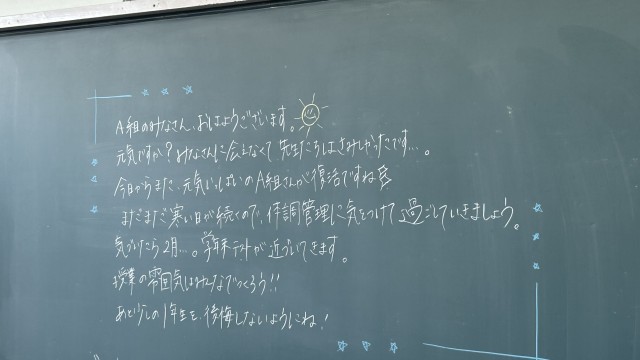 A組のみなさん、おはようございます。
元気ですか？みなさんに会えなくて先生たちはさみしかったです…。
今日からまた、元気いっぱいのA組さんが復活ですね
まだまだ寒い日が続くので、体調管理に気をつけて過ごしていきましょう。
気づいたら2月…。学年末テストが近づいてきます。
授業の雰囲気はみんなでつくろう!!
あと少しの1年生を、後悔しないようにね!